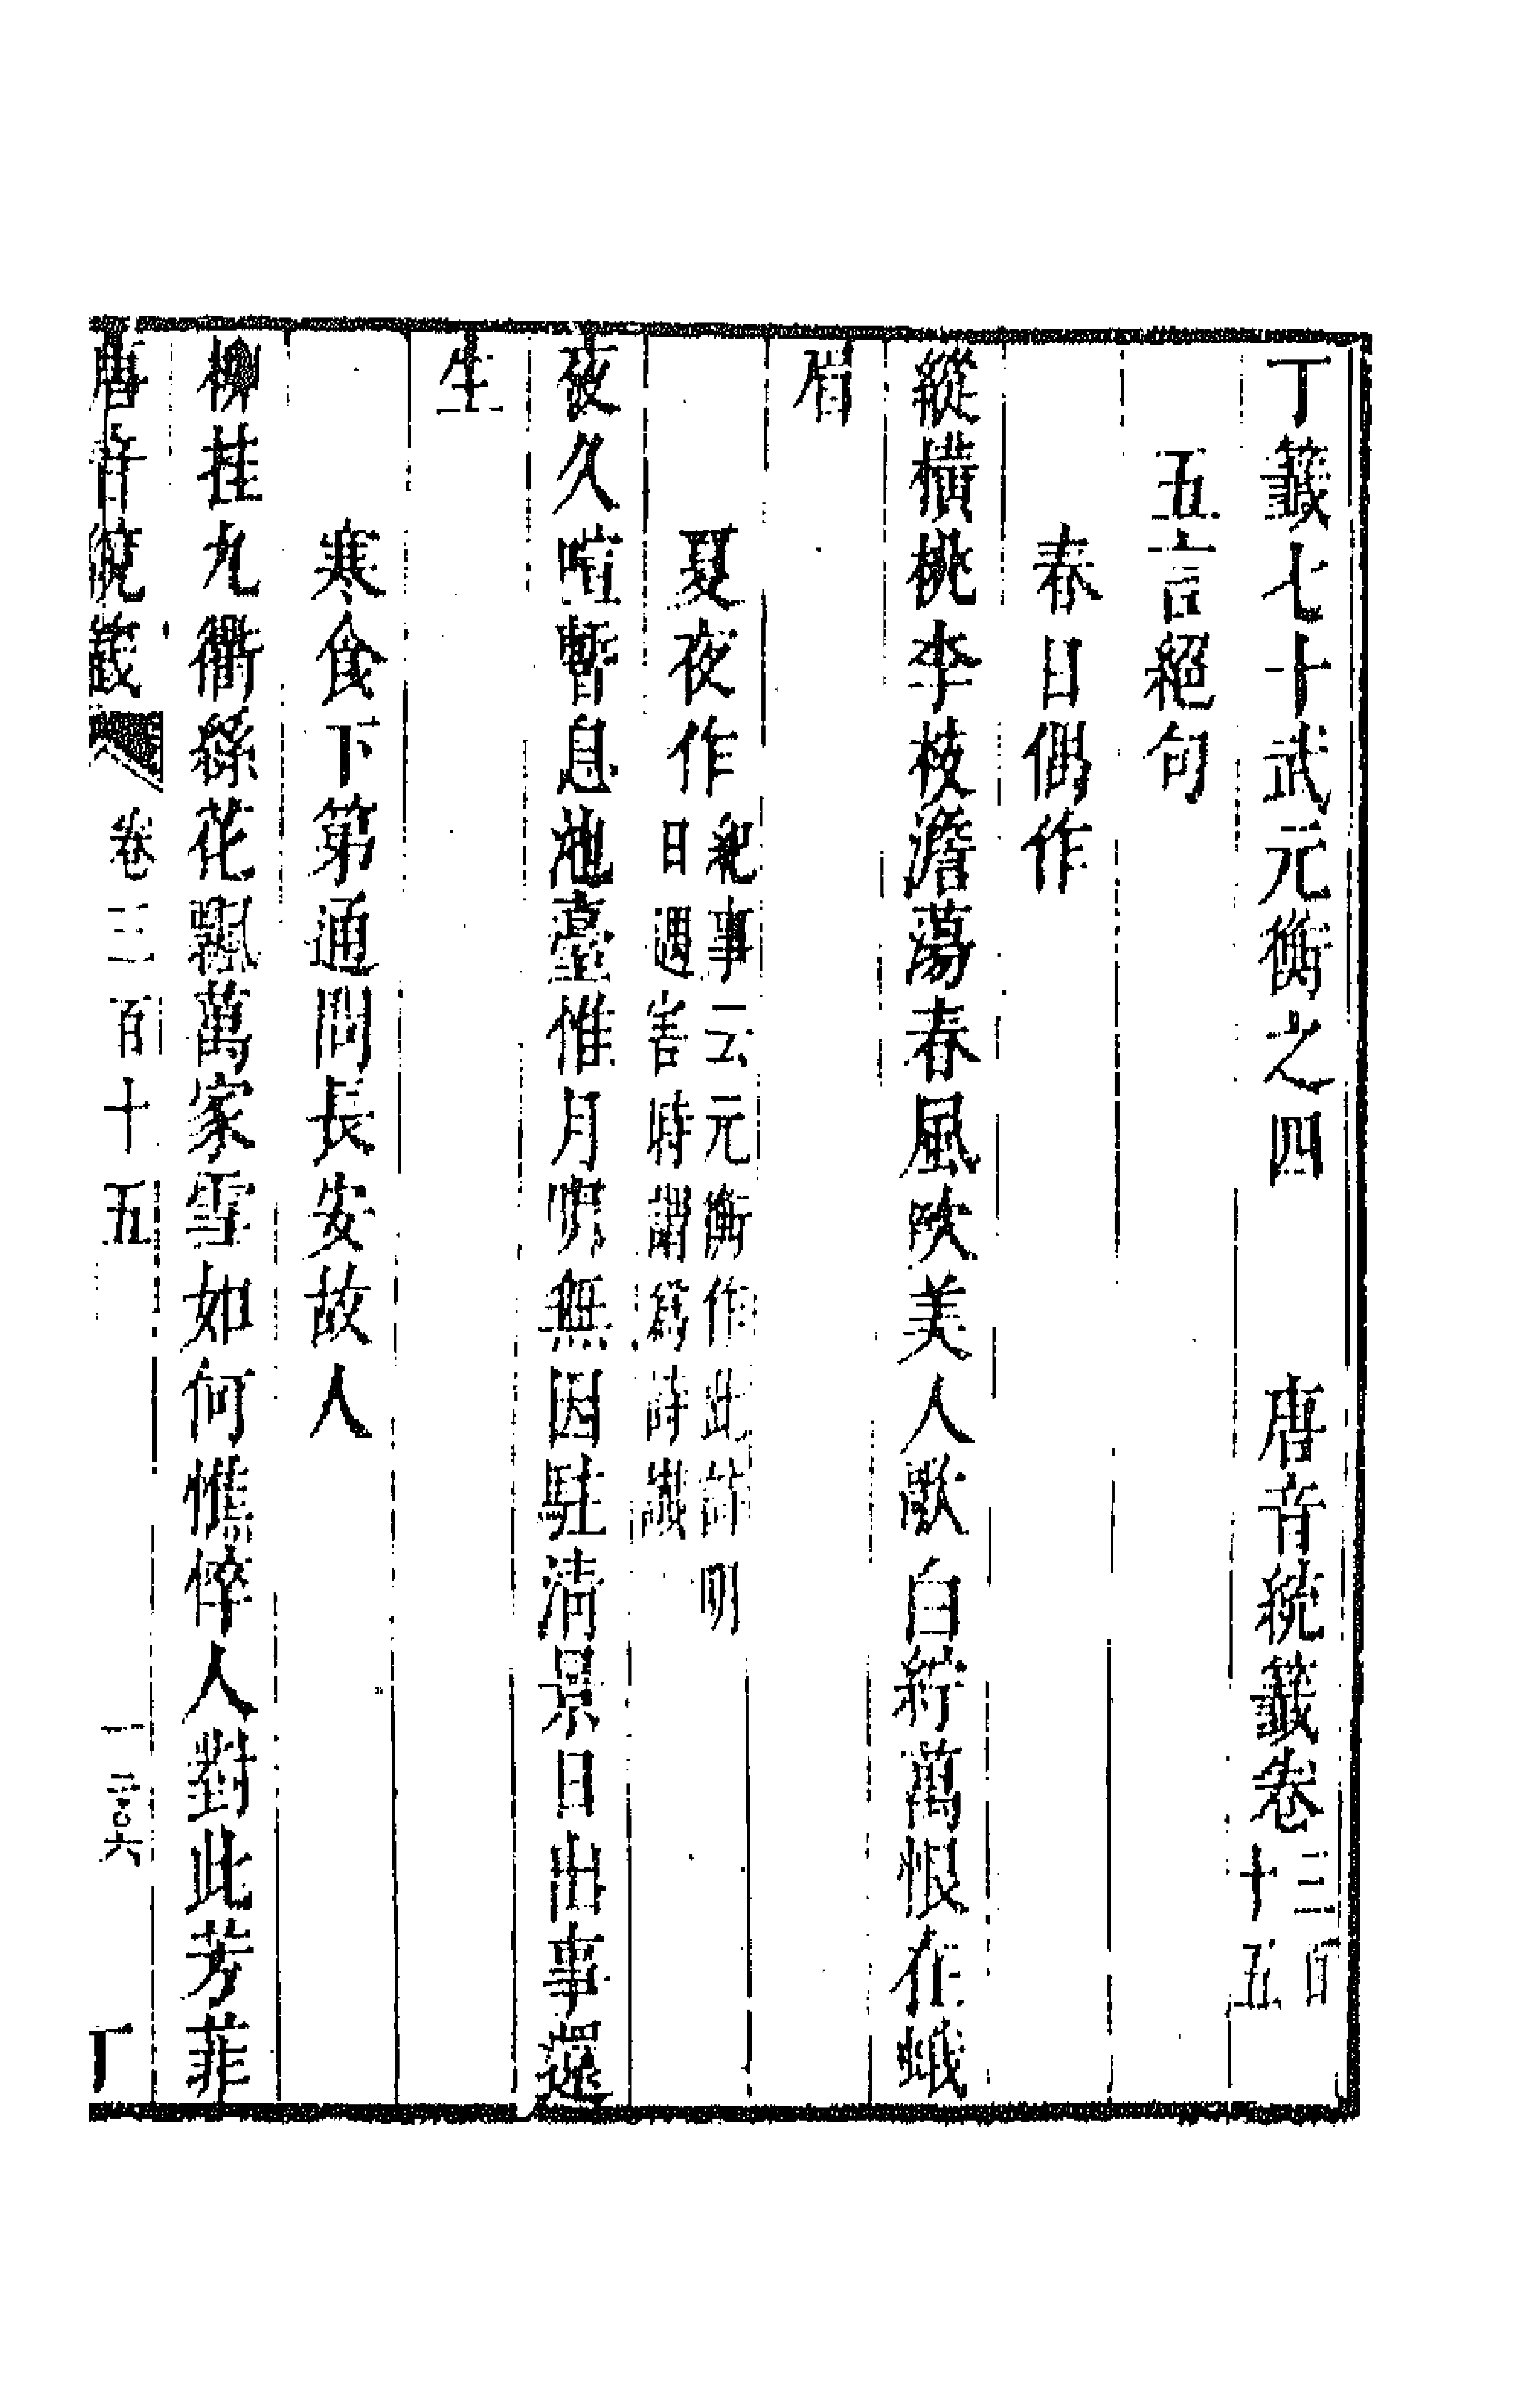 丁籖七十武元衡之四　唐音統籖卷三百十五
五言絕句
春日偶作
縱橫桃李枝澹蕩春風吹美人歌白紵萬恨在蛾
眉
夏夜作紀事云元衡作此詩明日遇害時謂爲詩讖
夜久喧暫息池臺惟月明無因駐淸景日出事還
生
寒食下第通問長安故人
柳挂九衢絲花飄萬家雪如何憔悴人對此芳菲
唐音統籖　卷三百十五　一　丁